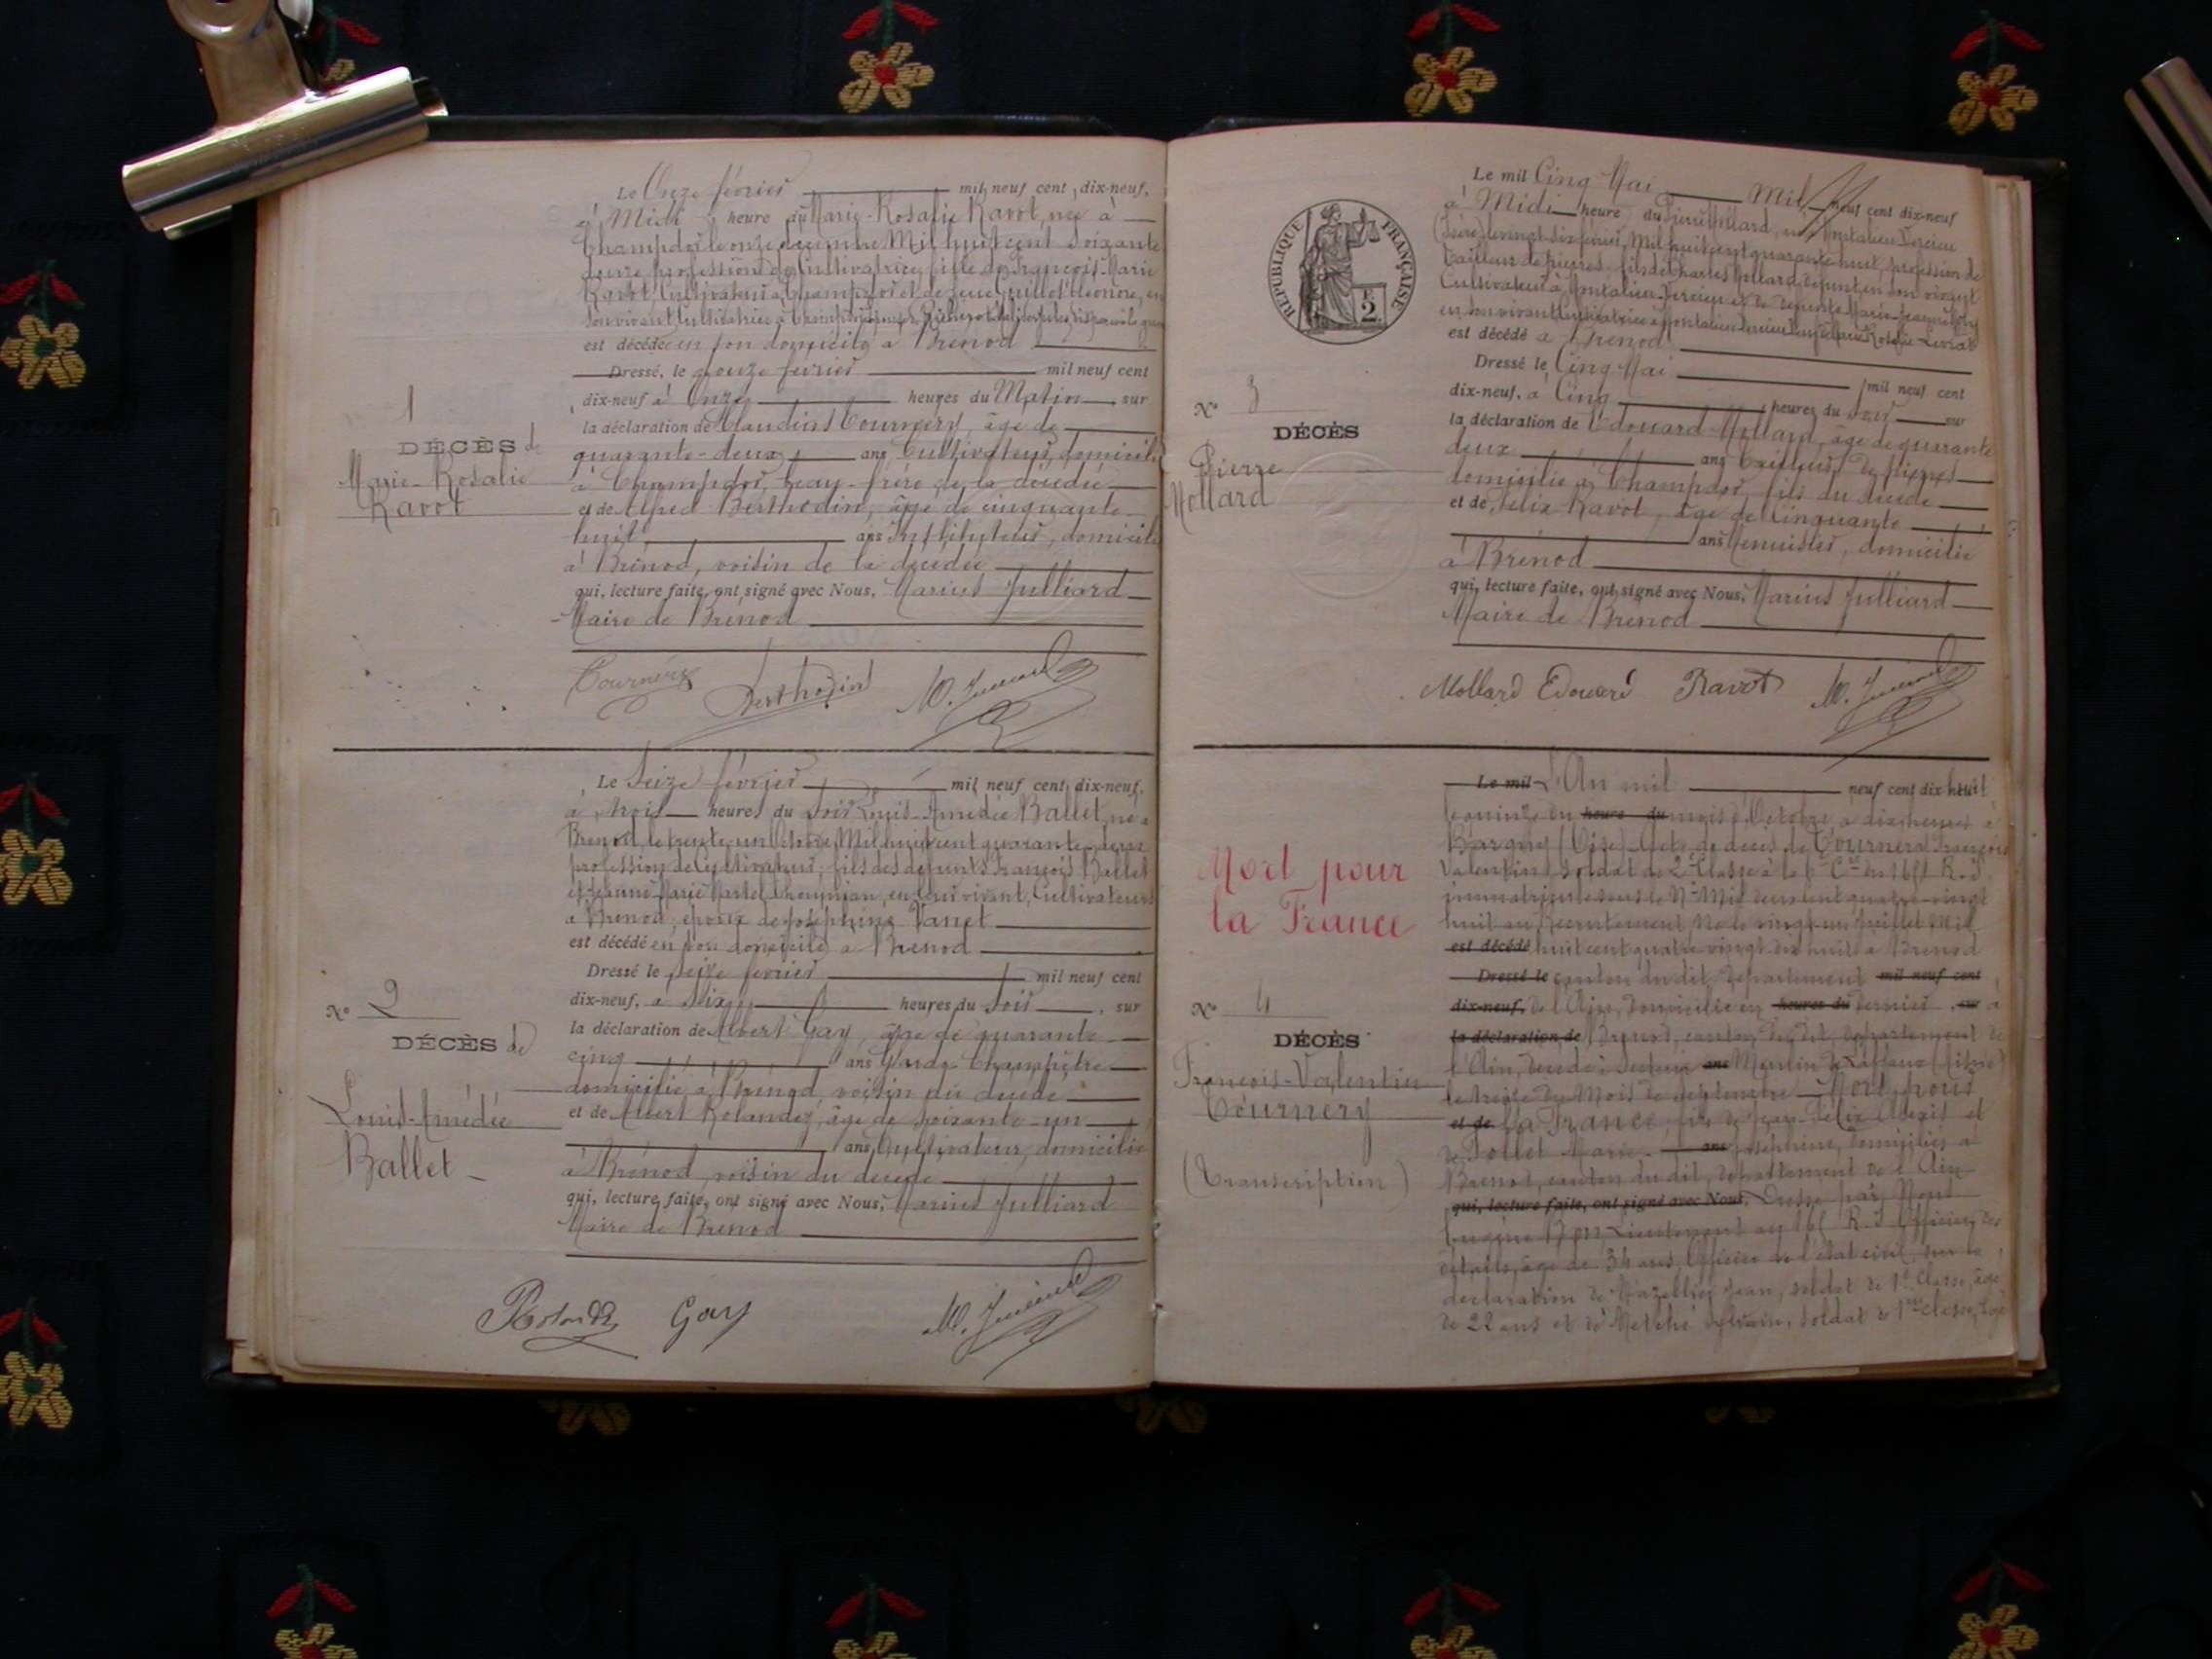 Le Onze février mil neuf cent dix-neuf,
à Midi heure du Marie-Rosalie Ravot, née à
Champdor le onze décembre Mil huit cent soixante
profession de Cultivatrice, fille de François-Marie
Ravot, Cultivateur à Champdor et de feue Guillot Eléonore, en
son vivant Cultivatrice à Champdor
est décédée en son domicile à Brénod
Dressé, le onze février mil neuf cent
dix-neuf à Onze heures du Matin sur
la déclaration de Claudius Tournery, âgé de
quarante-deux ans Cultivateur, domicilié
à Champdor, beau-frère de la décédée
et de Alfred Berthodin, âgé de cinquante
huit ans Instituteur, domicilié
à Brénod, voisin de la décédée
qui, lecture faite, ont signé avec Nous, Marius Julliard
Maire de Brénod
1
DÉCÈS de
Marie-Rosalie
Ravot
Tournery Berthodin M. Julliard
Le Seize février mil neuf cent dix-neuf,
à trois heures du Soir Louis-Amédée Ballet, né à
Brénod, le trente-un Octobre Mil huit cent quarante-deux
profession de Cultivateur, fils des défunts François Ballet
et Jeanne-Marie Martel, en leur vivant, Cultivateurs
à Brénod, époux de Joséphine Vanet
est décédé en son domicile à Brénod
Dressé le seize février mil neuf cent
dix-neuf, à Six heures du Soir, sur
la déclaration de Albert Gay, âgé de quarante
cinq ans Garde Champêtre
domicilié à Brénod, voisin du décédé
et de Albert Rolandez, âgé de soixante-un
ans, Cultivateur, domicilié
à Brénod, voisin du décédé
qui, lecture faite, ont signé avec Nous, Marius Julliard
Maire de Brénod
No 2
DÉCÈS de
Louis-Amédée
Ballet
Gay M. Julliard
RÉPUBLIQUE FRANÇAISE
2
Le mil Cinq Mai Mil neuf cent dix-neuf
à Midi heure du Pierre Mollard, né à Montalieu-Vercieu
(Isère) le vingt-six février Mil huit cent quarante-huit, profession de
Tailleur de pierres, fils de Charles Mollard, défunt en son vivant
Cultivateur à Montalieu-Vercieu et de défunte Marie-Jeanne
en son vivant Cultivatrice à Montalieu-Vercieu
est décédé à Brénod
Dressé le Cinq Mai mil neuf cent
dix-neuf, à Cinq heures du Soir sur
la déclaration de Edouard Mollard, âgé de quarante
deux ans Tailleur de pierres
domicilié à Champdor, fils du décédé
et de Félix Ravot, âgé de Cinquante
ans Menuisier, domicilié
à Brénod
qui, lecture faite, ont signé avec Nous, Marius Julliard
Maire de Brénod
No 3
DÉCÈS
Pierre
Mollard
Mollard Edouard Ravot M. Julliard
Le mil L'An mil neuf cent dix huit
le quinze du heure du mois d'Octobre, à dix heures à
Bargny (Oise). Acte de décès de Tournery François
Valentin, Soldat de 2e Classe à la 6e Cie du R.I.
immatriculé sous le No Mil deux cent quatre-vingt
huit au Recrutement. Né le vingt-un Juillet mil
est décédé huit cent quatre-vingt dix huit à Brénod
Dressé le canton dudit, Département mil neuf cent
dix-neuf, de l'Ain, domicilié en heures du dernier, sur à
la déclaration de Brénod, canton dudit, département de
l'Ain, décédé à Secteur ans Moulin de Laffaux (Aisne)
le treize du Mois de Septembre. Mort pour
et de la France, fils de Jean-Félix Alexis et
de Tollet Marie- ans Joséphine, domiciliés à
Brénod, canton dudit, département de l'Ain
qui, lecture faite, ont signé avec Nous, Dressé par Nous
Eugène Lieutenant au R.I. Officier des
détails, âgé de 34 ans, Officier de l'état civil, sur la
déclaration de Mazellier Jean, soldat de 1re Classe, âgé
de 22 ans et de Métché Sylvain, soldat de 1re classe, âgé
Mort pour
la France
No 4
DÉCÈS
François-Valentin
Tournery
(Transcription)